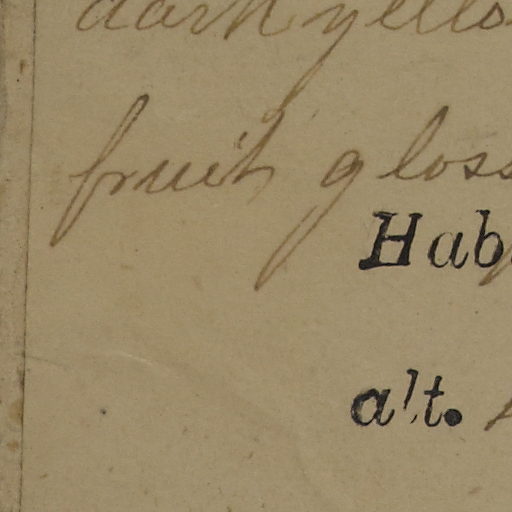 dark yello
fruit gloss
Hab.
alt.